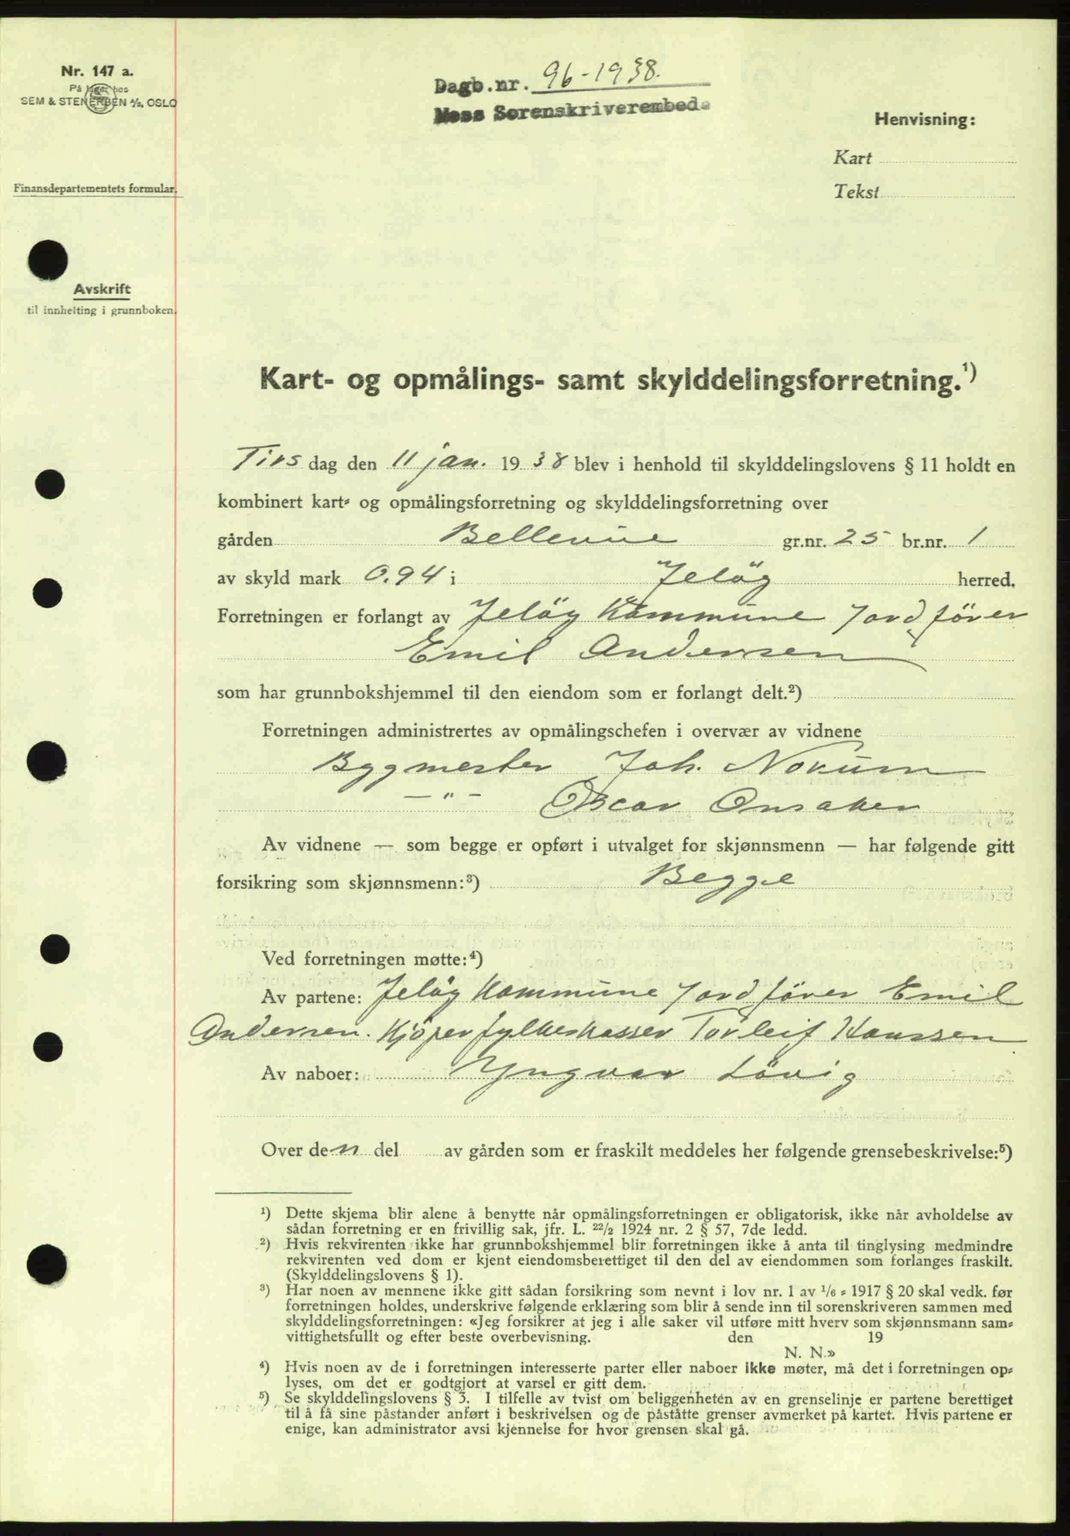 Nr. 147 a.
På lager hos
SEM & STENERSEN A/S, OSLO
Dagb.nr. 96-1938.
Moss Sorenskriverembede
Henvisning:
Kart
Tekst
Finansdepartementets formular.
Avskrift
til innhefting i grunnboken.
Kart- og opmålings- samt skylddelingsforretning.¹)
Tirs dag den 11 jan. 1938 blev i henhold til skylddelingslovens § 11 holdt en
kombinert kart- og opmålingsforretning og skylddelingsforretning over
gården Bellevue gr.nr. 25 br.nr. 1
av skyld mark 0,94 i Jeløy herred.
Forretningen er forlangt av Jeløy Kommune v/ordfører
Emil Andersen
som har grunnbokshjemmel til den eiendom som er forlangt delt.²)
Forretningen administrertes av opmålingschefen i overvær av vidnene
Byggmester Joh. Norum
—"— Oscar Onsaker
Av vidnene — som begge er opført i utvalget for skjønnsmenn — har følgende gitt
forsikring som skjønnsmenn:³) Begge
Ved forretningen møtte:⁴)
Av partene: Jeløy Kommune v/ordfører Emil
Andersen. Kjøper fylkeskasser Torleif Hanssen
Av naboer: Yngvar Løvig
Over den del av gården som er fraskilt meddeles her følgende grensebeskrivelse:⁵)
¹) Dette skjema blir alene å benytte når opmålingsforretningen er obligatorisk, ikke når avholdelse av
sådan forretning er en frivillig sak, jfr. L. 22/2 1924 nr. 2 § 57, 7de ledd.
²) Hvis rekvirenten ikke har grunnbokshjemmel blir forretningen ikke å anta til tinglysing medmindre
rekvirenten ved dom er kjent eiendomsberettiget til den del av eiendommen som forlanges fraskilt.
(Skylddelingslovens § 1).
³) Har noen av mennene ikke gitt sådan forsikring som nevnt i lov nr. 1 av 1/6 - 1917 § 20 skal vedk. før
forretningen holdes, underskrive følgende erklæring som blir å sende inn til sorenskriveren sammen med
skylddelingsforretningen: «Jeg forsikrer at jeg i alle saker vil utføre mitt hverv som skjønnsmann sam-
vittighetsfullt og efter beste overbevisning. den 19
N. N.»
⁴) Hvis noen av de i forretningen interesserte parter eller naboer ikke møter, må det i forretningen op-
lyses, om det er godtgjort at varsel er gitt dem.
⁵) Se skylddelingslovens § 3. I tilfelle av tvist om beliggenheten av en grenselinje er partene berettiget
til å få sine påstander anført i beskrivelsen og de påståtte grenser avmerket på kartet. Hvis partene er
enige, kan administrator avsi kjennelse for hvor grensen skal gå.